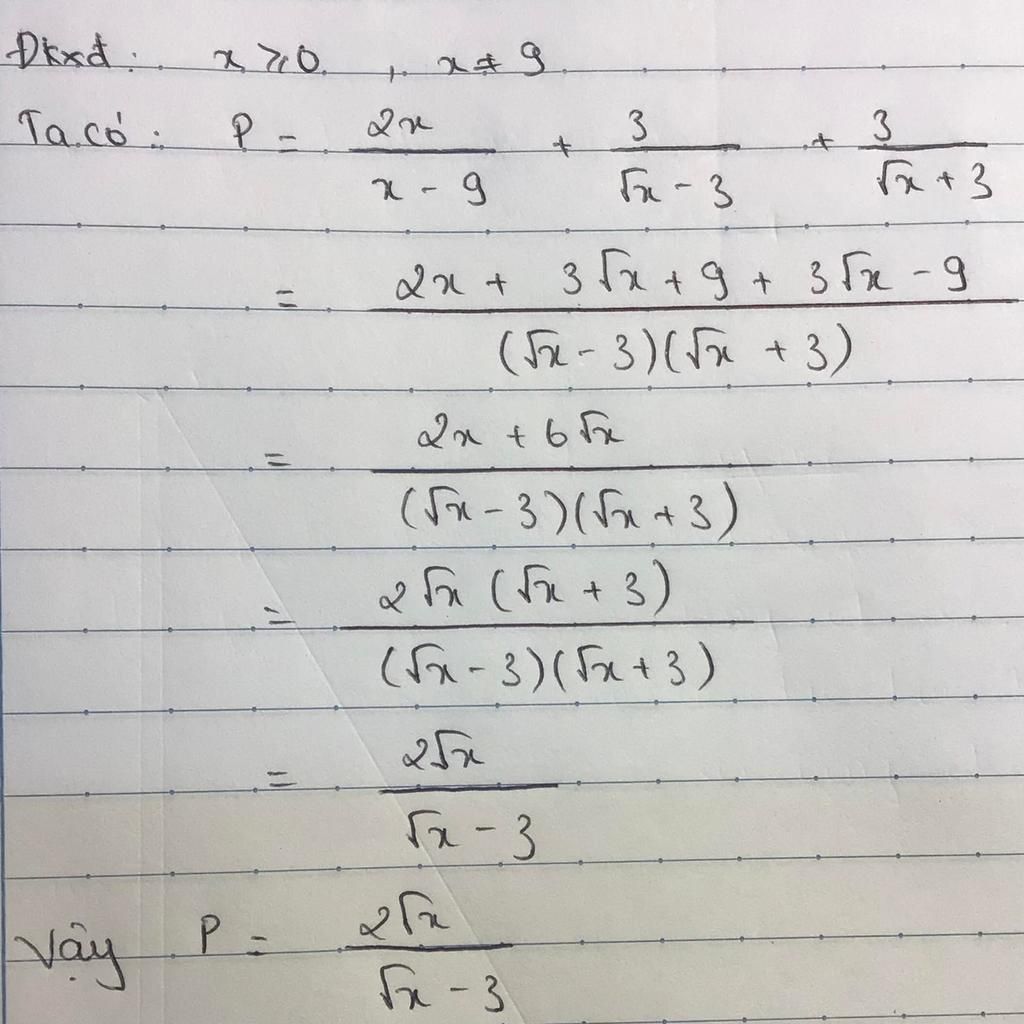 Đkxđ: x ≥ 0, x ≠ 9
Ta có: P = 2x/(x - 9) + 3/(√x - 3) + 3/(√x + 3)
= (2x + 3√x + 9 + 3√x - 9)/((√x - 3)(√x + 3))
= (2x + 6√x)/((√x - 3)(√x + 3))
= (2√x (√x + 3))/((√x - 3)(√x + 3))
= 2√x/(√x - 3)
Vậy P = 2√x/(√x - 3)